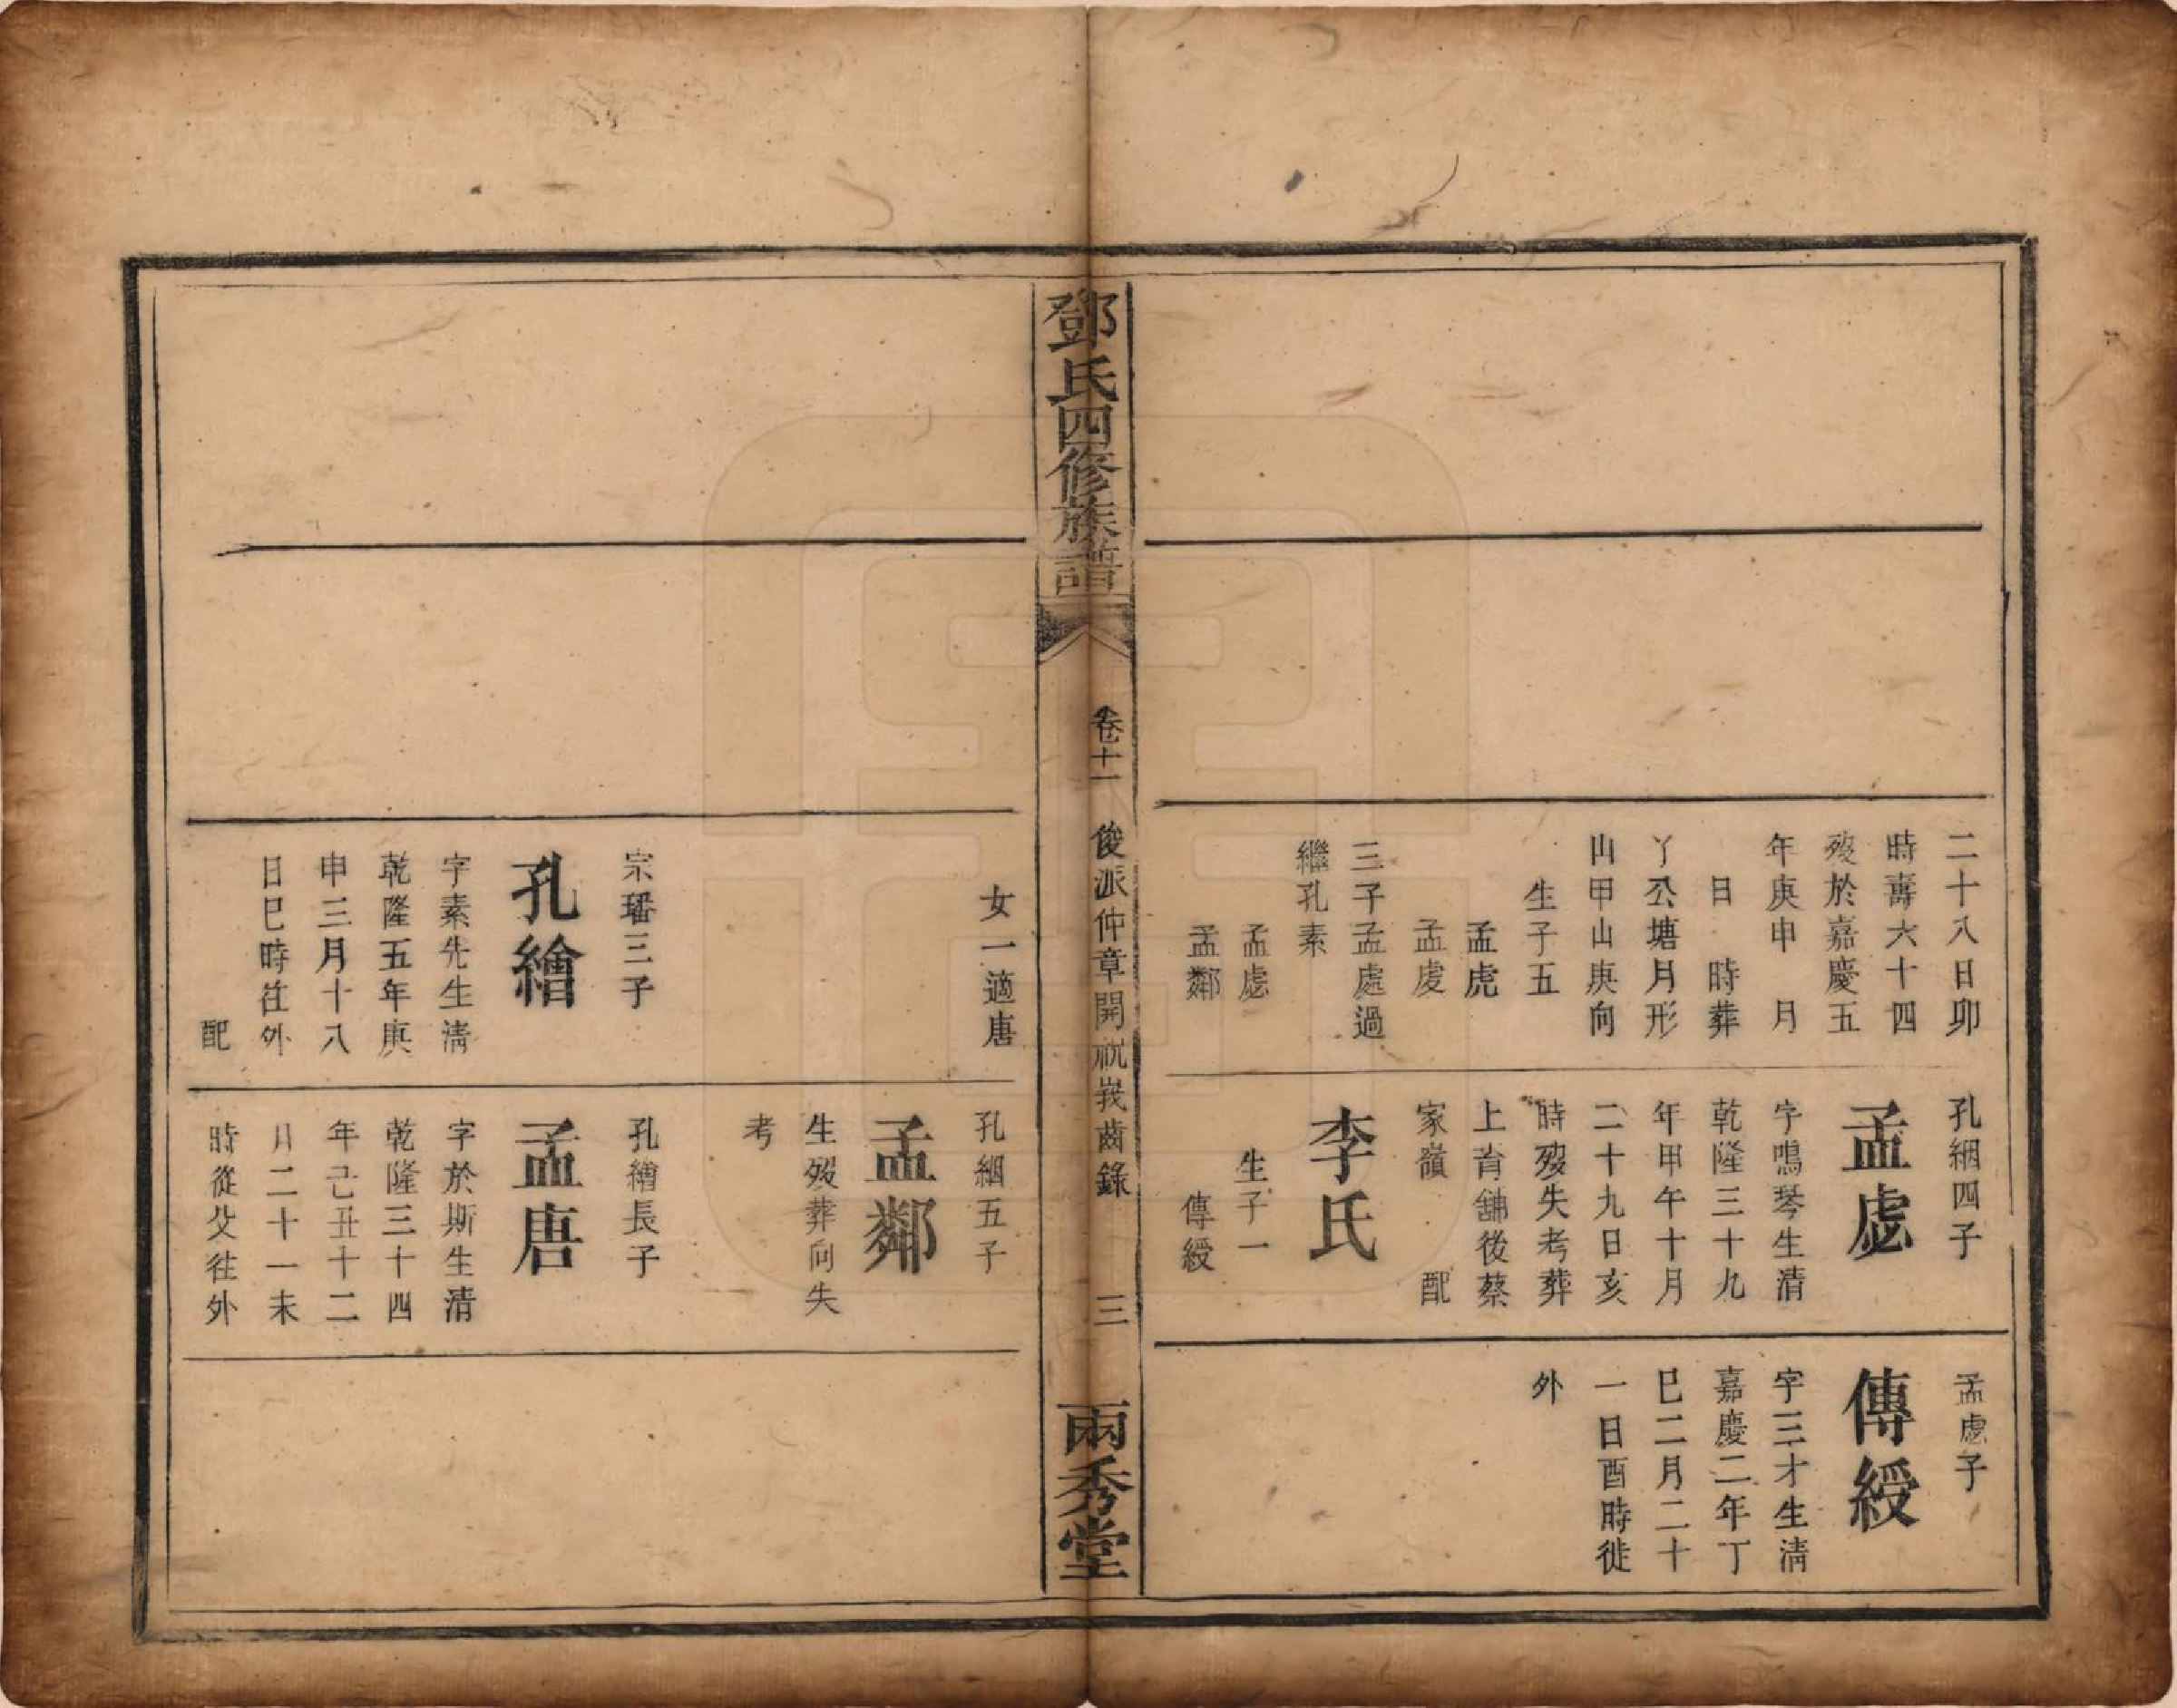 二十八日卯
時壽六十四
歿於嘉慶五
年庚申　月
日　時葬
丫公塘月形
山甲山庚向
生子五
孟虎
孟虔
三子孟處過
繼孔素
孟處
孟鄰
孔絪四子
孟處
字鳴琴生清
乾隆三十九
年甲午十月
二十九日亥
時歿失考葬
上背舖後蔡
家嶺　　配
李氏
生子一
傳綬
孟處子
傳綬
字三才生清
嘉慶二年丁
巳二月二十
一日酉時徙
外
鄧氏四修族譜
卷十一
俊派仲章開祝峩齒錄
三
兩秀堂
女一適唐
宗璠三子
孔繪
字素先生清
乾隆五年庚
申三月十八
日巳時徃外
配
孔絪五子
孟鄰
生歿葬向失
考
孔繪長子
孟唐
字於斯生清
乾隆三十四
年己丑十二
月二十一未
時從父徃外